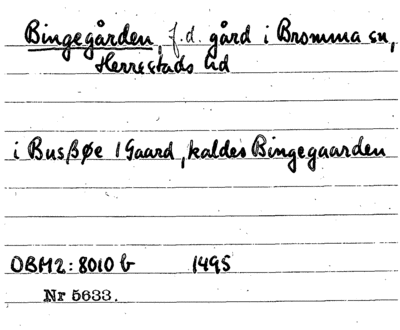 Bingegården, f.d. gård i Bromma sn,
Herrestads hd
i Busßøe 1 Gaard, kaldes Bingegaarden
OBM2:8010 b 1495
Nr 5633.